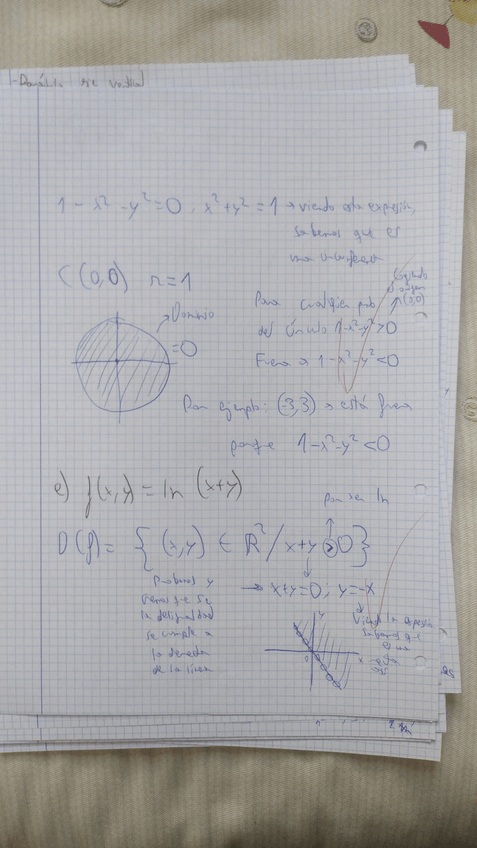 1 - x² - y² = 0 , x² + y² = 1 → viendo esta expresión,
sabemos que es
una
C(0,0) r=1
Dominio
=0
Para cualquier pto
del círculo 1-x²-y²>0
Fuera → 1-x²-y²<0
Cogiendo
el origen
(0,0)
Por ejemplo: (-3,3) → está fuera
porque 1-x²-y²<0
e) f(x,y) = ln (x+y)
por ser ln
D(f) = { (x,y) ∈ R² / x+y > 0 }
→ x+y=0 ; y=-x
Probamos y
vemos que se
la desigualdad
se cumple a
la derecha
de la línea
Viendo la expresión
sabemos que
es una
recta
y
x
0